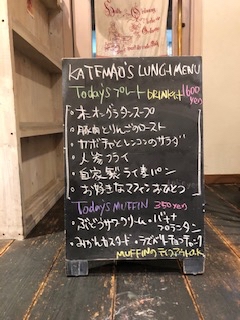 KATEMAO'S LUNCH MENU
Today's プレート DRINK付 1600yen
・オニオングラタンスープ
・豚肉とりんごのロースト
・カボチャとレンコンのサラダ
・人参フライ
・自家製ライ麦パン
・お好きなマフィンおひとつ
Today's MUFFIN 350yen
・ぶどうサワークリーム ・バナナ
・みかんカスタード
MUFFINのテイクアウトO.K